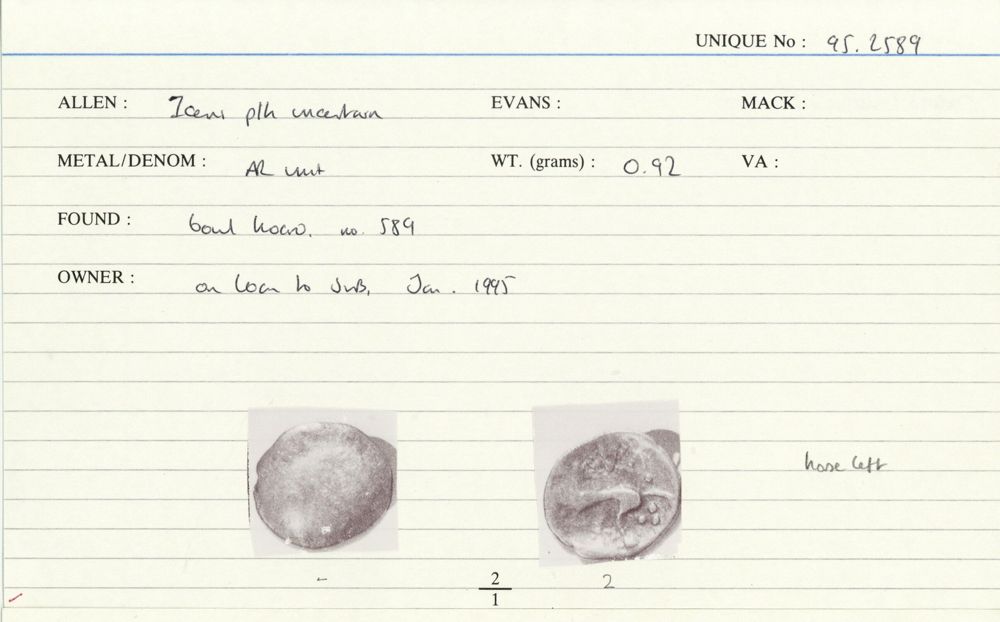 UNIQUE No : 95. 2589
ALLEN : Iceni ptH uncertain EVANS : MACK :
METAL/DENOM : AR unit WT. (grams) : 0.92 VA :
FOUND : bowl hoard. no. 589
OWNER : on loan to Jan. 1995
horse left
– 2/1 2